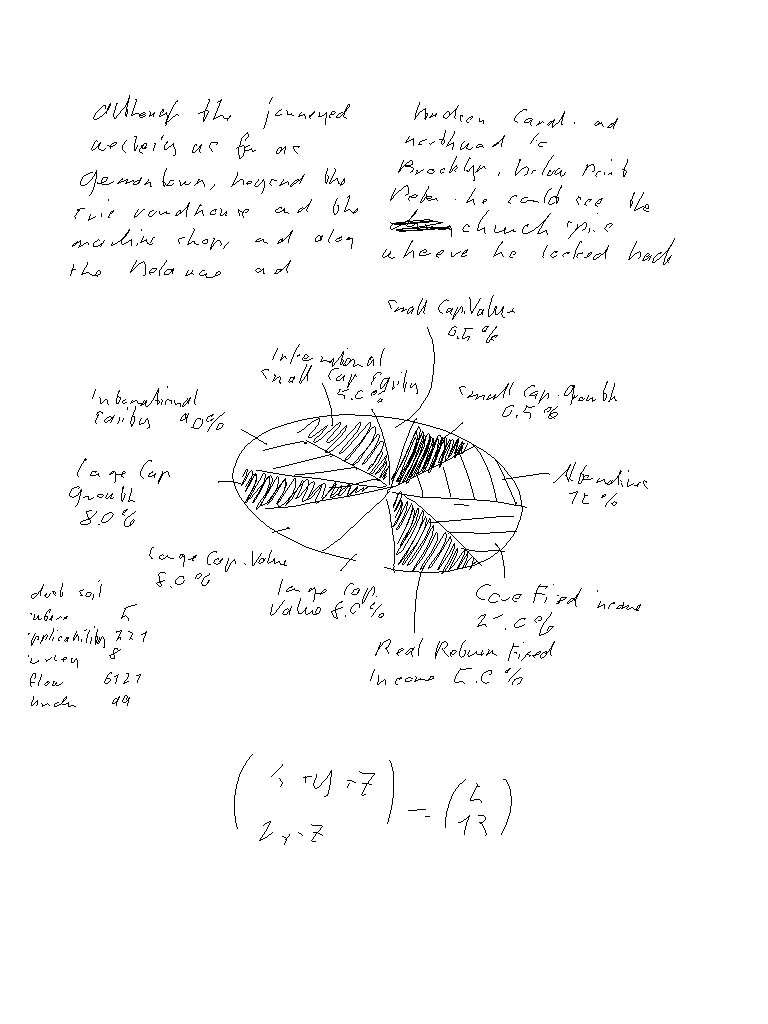 although the journeyed
as far as
Germantown, beyond the
Erie roundhouse and the
machine shop, and along
the Delaware and
Hudson Canal. and
northward to
Brooklyn, below Point
Peter. he could see the
church spire
wherever he looked back
Small Cap.Value
0.5 %
International
Small Cap Equity
5.0 %
Small Cap.Growth
0.5 %
International
Equity 9.0%
Large Cap
Growth
8.0 %
Alternatives
15 %
Large Cap.Value
8.0 %
Large Cap.
Value 8.0 %
Core Fixed income
25.0 %
Real Return Fixed
Income 5.0 %
soil
where 5
applicability 221
8
flow 6121
99